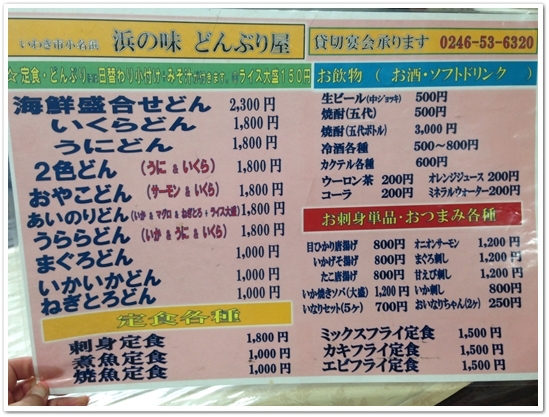 いわき市小名浜 浜の味 どんぶり屋 貸切宴会承ります 0246-53-6320
☆ 定食・どんぶりには日替わり小付け+みそ汁が付きます。 ライス大盛150円
海鮮盛合せどん 2,300円
いくらどん 1,800円
うにどん 1,800円
2色どん (うに & いくら) 1,800円
おやこどん (サーモン & いくら) 1,800円
あいのりどん (いか & マグロ & ねぎとろ + ライス大盛) 1,800円
うららどん (いか & うに & いくら) 1,800円
まぐろどん 1,000円
いかいかどん 1,000円
ねぎとろどん 1,000円
定食各種
刺身定食 1,800円
煮魚定食 1,000円
焼魚定食 1,000円
お飲物 ( お酒・ソフトドリンク )
生ビール(中ジョッキ) 500円
焼酎(五代) 500円
焼酎(五代ボトル) 3,000円
冷酒各種 500〜800円
カクテル各種 600円
ウーロン茶 200円 オレンジジュース200円
コーラ 200円 ミネラルウォーター200円
お刺身単品・おつまみ各種
目ひかり唐揚げ 800円 オニオンサーモン 1,200円
いかげそ揚げ 800円 まぐろ刺し 1,200円
たこ唐揚げ 800円 甘えび刺し 1,200円
いか焼きソバ(大盛) 1,200円 いか刺し 800円
いなりセット(5ヶ) 700円 おいなりちゃん(2ヶ) 250円
ミックスフライ定食 1,500円
カキフライ定食 1,500円
エビフライ定食 1,500円